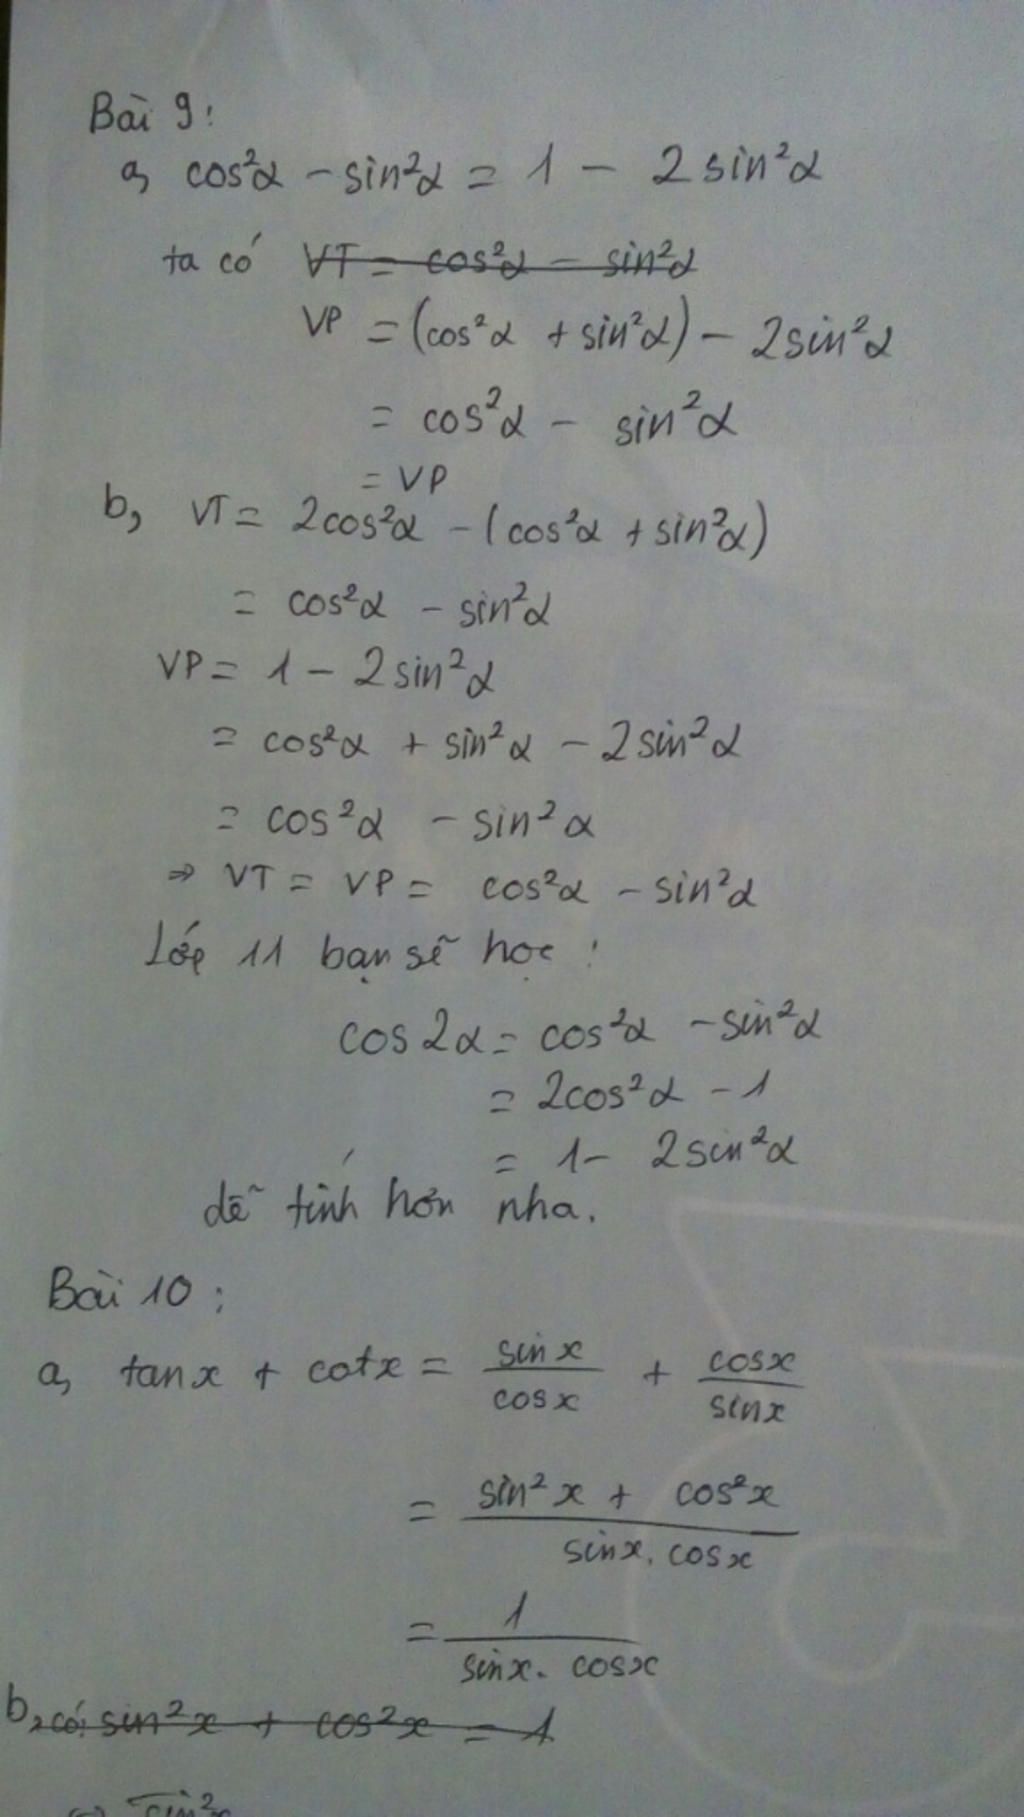 Bài 9:
a, cos²α - sin²α = 1 - 2sin²α
ta có VT = cos²α - sin²α
VP = (cos²α + sin²α) - 2sin²α
= cos²α - sin²α
= VP
b, VT = 2cos²α - (cos²α + sin²α)
= cos²α - sin²α
VP = 1 - 2sin²α
= cos²α + sin²α - 2sin²α
= cos²α - sin²α
⇒ VT = VP = cos²α - sin²α
Lớp 11 bạn sẽ học:
cos2α = cos²α - sin²α
= 2cos²α - 1
= 1 - 2sin²α
dễ tính hơn nha.
Bài 10:
a, tanx + cotx = sinx/cosx + cosx/sinx
= (sin²x + cos²x)/(sinx.cosx)
= 1/(sinx.cosx)
b, có: sin²x + cos²x = 1
sin²x